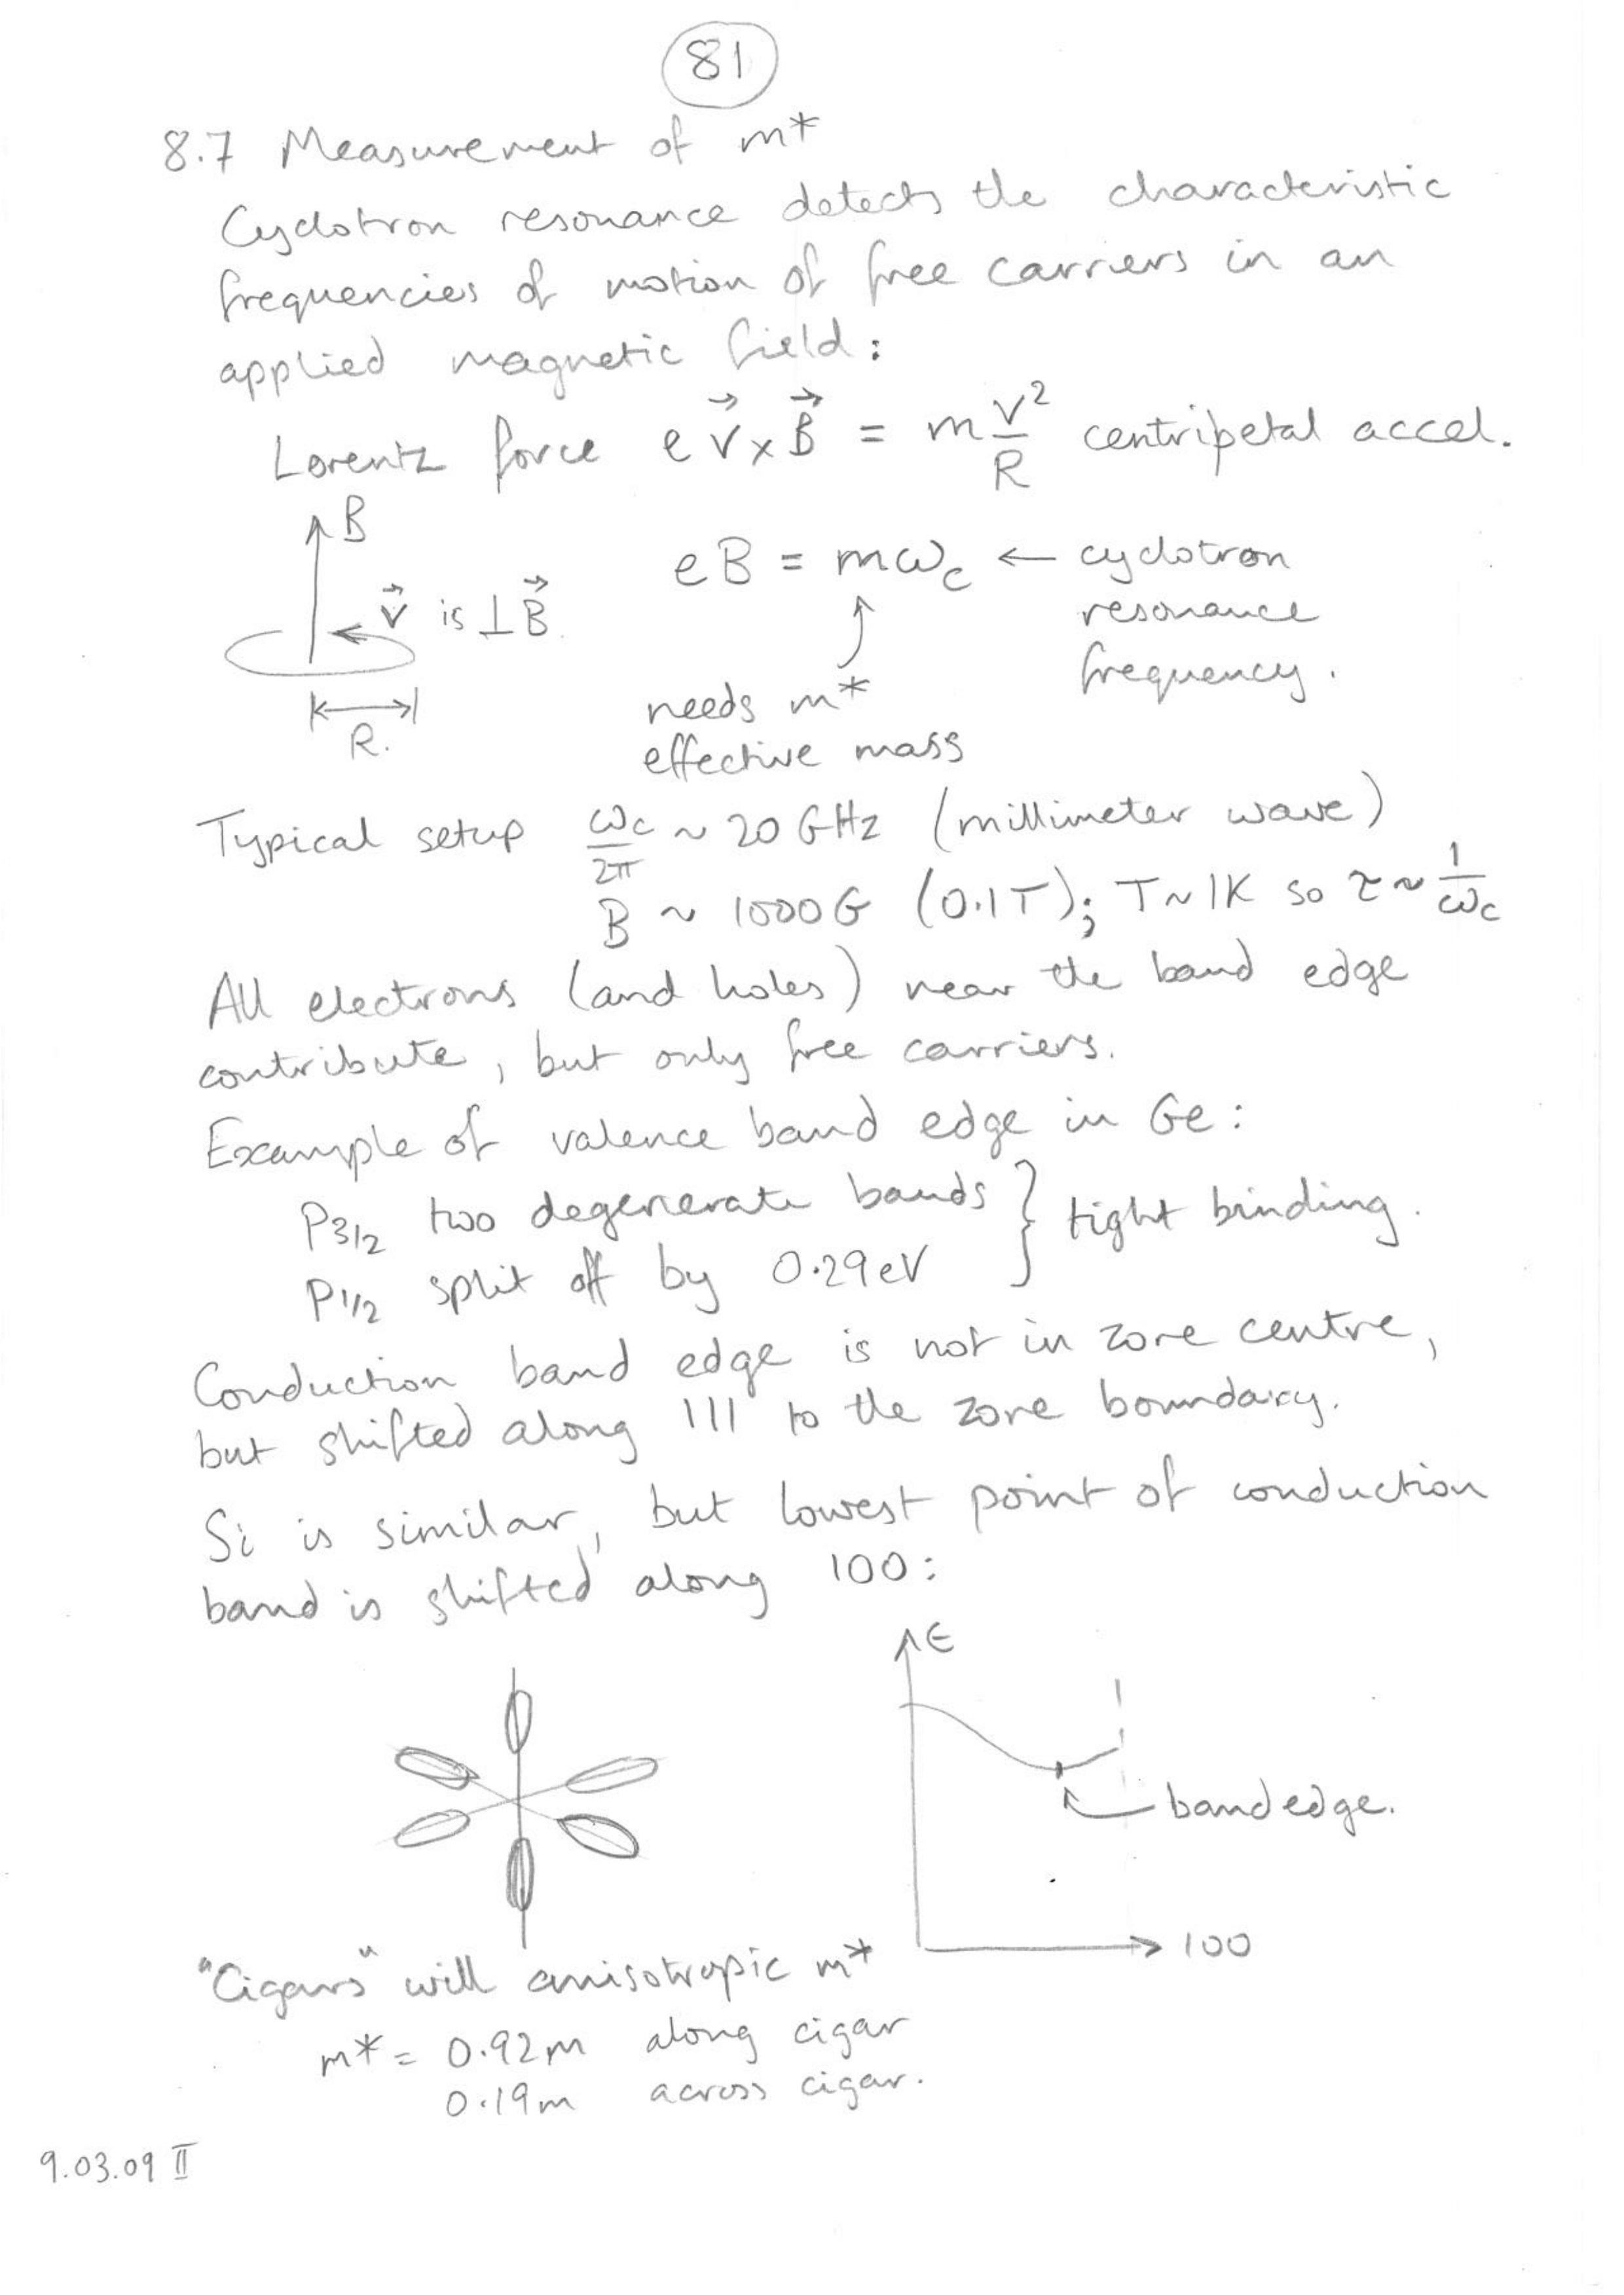 81
8.7 Measurement of m*
Cyclotron resonance detects the characteristic
frequencies of motion of free carriers in an
applied magnetic field:
Lorentz force e v⃗ × B⃗ = m v²/R centripetal accel.
B
v⃗ is ⊥ B⃗
R.
eB = mω_c ← cyclotron
resonance
frequency.
needs m*
effective mass
Typical setup ω_c/2π ~ 20 GHz (millimeter wave)
B ~ 1000 G (0.1T); T~1K so τ ~ 1/ω_c
All electrons (and holes) near the band edge
contribute, but only free carriers.
Example of valence band edge in Ge:
P3/2 two degenerate bands } tight binding.
P1/2 split off by 0.29eV
Conduction band edge is not in zone centre,
but shifted along 111 to the zone boundary.
Si is similar, but lowest point of conduction
band is shifted along 100:
E
band edge.
100
"Cigars" will anisotropic m*
m* = 0.92m along cigar
0.19m across cigar.
9.03.09 II